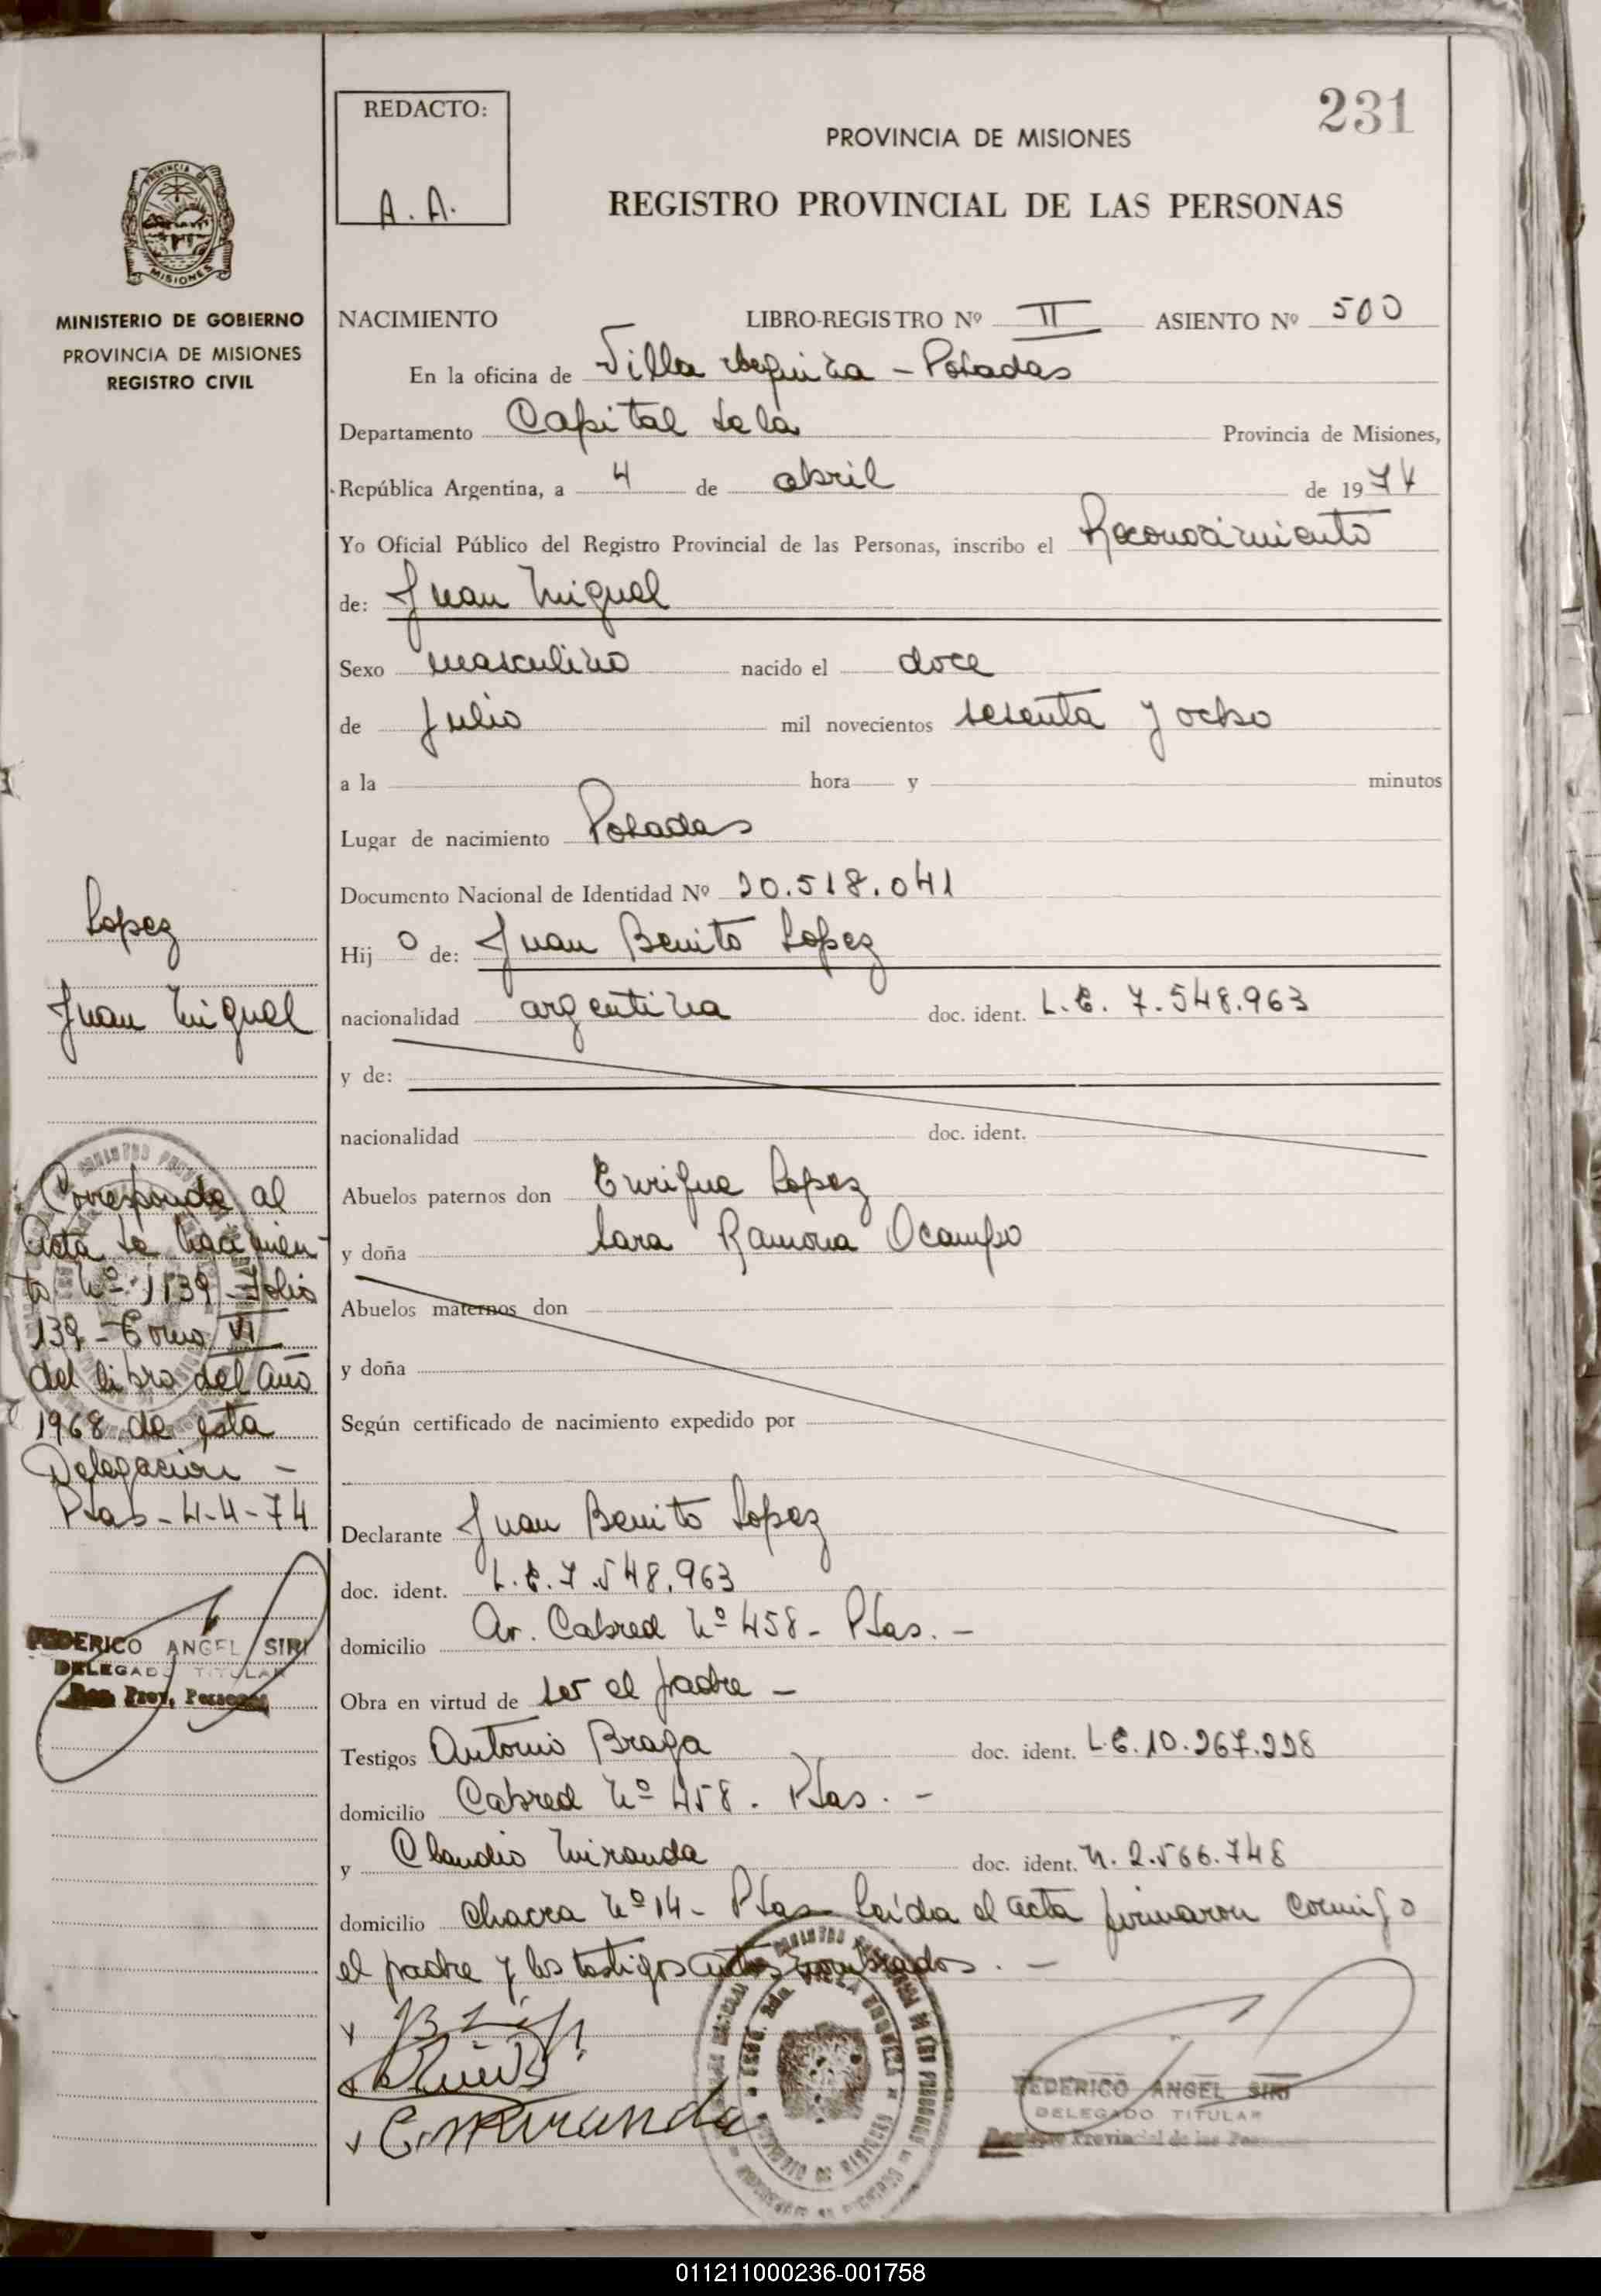 231
REDACTO:
A. A.
PROVINCIA DE MISIONES
REGISTRO PROVINCIAL DE LAS PERSONAS
PROVINCIA DE
MISIONES
MINISTERIO DE GOBIERNO
PROVINCIA DE MISIONES
REGISTRO CIVIL
NACIMIENTO LIBRO-REGISTRO Nº II ASIENTO Nº 500
En la oficina de Villa Urquiza - Posadas
Departamento Capital Provincia de Misiones,
República Argentina, a 4 de abril de 1974
Yo Oficial Público del Registro Provincial de las Personas, inscribo el Reconocimiento
de: Juan Miguel
Sexo masculino nacido el doce
de Julio mil novecientos sesenta y ocho
a la hora y minutos
Lugar de nacimiento Posadas
Documento Nacional de Identidad Nº 20.518.041
Hij o de: Juan Benito Lopez
nacionalidad argentina doc. ident. L.E. 7.548.963
y de:
nacionalidad doc. ident.
Abuelos paternos don Enrique Lopez
y doña Sara Ramona Ocampo
Abuelos maternos don
y doña
Según certificado de nacimiento expedido por
Declarante Juan Benito Lopez
doc. ident. L.E. 7.548.963
domicilio Av. Cabred Nº 458 - Psas. -
Obra en virtud de ser el padre -
Testigos Antonio Braga doc. ident. L.E. 10.267.228
domicilio Cabred Nº 458. Psas. -
y Claudio Miranda doc. ident. M. 2.566.748
domicilio Chacra Nº 14 - Psas. Leida el acta firmaron conmigo
el padre y los testigos antes nombrados. -
C. Miranda
FEDERICO ANGEL SIRI
DELEGADO TITULAR
Registro Provincial de las Personas
Lopez
Juan Miguel
Corresponde al
acta de nacimien-
to Nº 1139 - Folio
139 - Tomo VI
del libro del año
1968 de esta
Delegacion -
Psas - 4-4-74
FEDERICO ANGEL SIRI
DELEGADO TITULAR
Reg. Prov. Personas
011211000236-001758